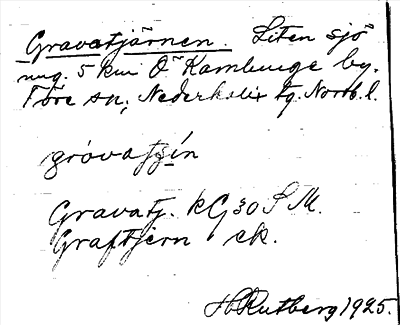 Gravatjärnen. Liten sjö
ung. 5 km Ö Kamlunge by.
Töre sn, Nederkalix tg. Norrb. l.
grovatjịn
Gravatj. kG 30 S M.
Graftjern ek.
H Rutberg 1925.